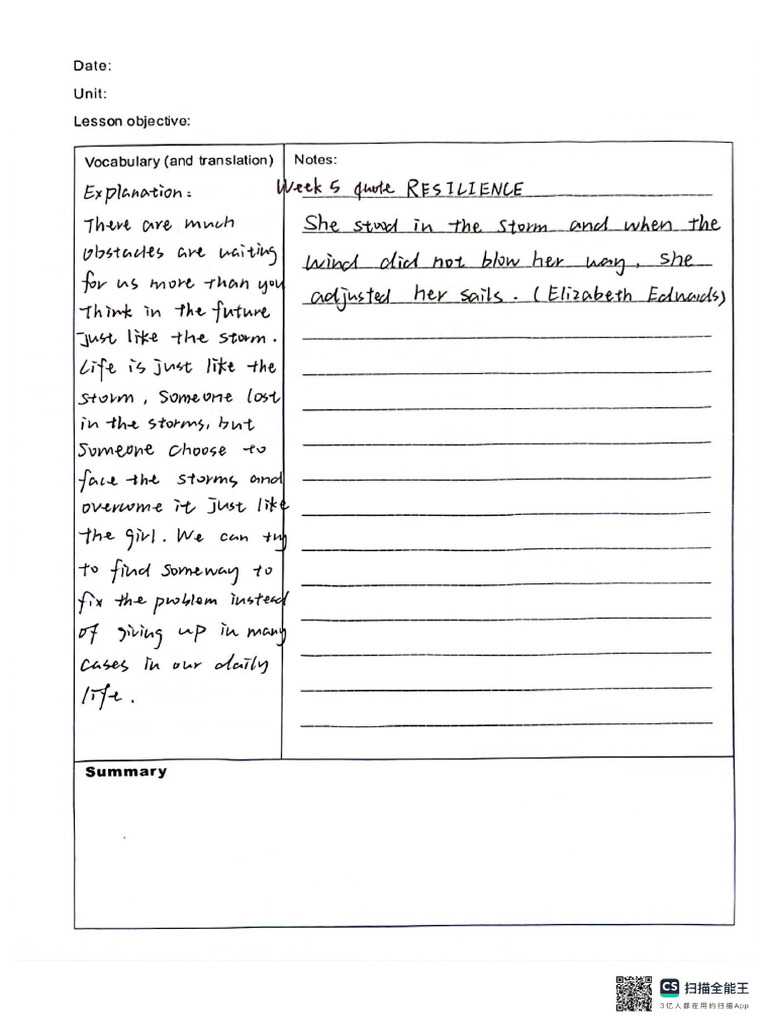 Date:
Unit:
Lesson objective:
Vocabulary (and translation)
Explanation:
There are much
obstacles are waiting
for us more than you
think in the future
just like the storm.
Life is just like the
storm, someone lost
in the storms, but
someone choose to
face the storms and
overcome it just like
the girl. We can try
to find someway to
fix the problem instead
of giving up in many
cases in our daily
life.
Notes:
Week 5 quote RESILIENCE
She stood in the storm and when the
wind did not blow her way, she
adjusted her sails. (Elizabeth Edwards)
Summary
CS 扫描全能王
3亿人都在用的扫描App